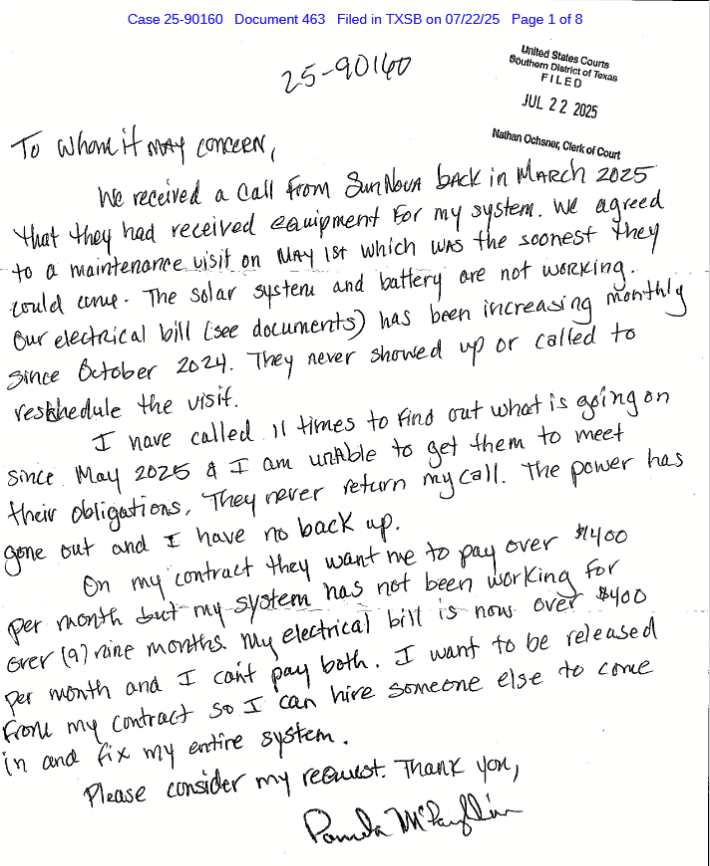 Case 25-90160 Document 463 Filed in TXSB on 07/22/25 Page 1 of 8
25-90160
United States Courts
Southern District of Texas
FILED
JUL 22 2025
Nathan Ochsner, Clerk of Court
To whom it may concern,
We received a call from SunNova back in March 2025
that they had received equipment for my system. We agreed
to a maintenance visit on May 1st which was the soonest they
could come. The solar system and battery are not working.
Our electrical bill (see documents) has been increasing monthly
since October 2024. They never showed up or called to
reschedule the visit.
I have called 11 times to find out what is going on
since May 2025 & I am unable to get them to meet
their obligations. They never return my call. The power has
gone out and I have no back up.
On my contract they want me to pay over $1400
per month but my system has not been working for
over (9) nine months. My electrical bill is now over $400
per month and I can't pay both. I want to be released
from my contract so I can hire someone else to come
in and fix my entire system.
Please consider my request. Thank you,
Pamela